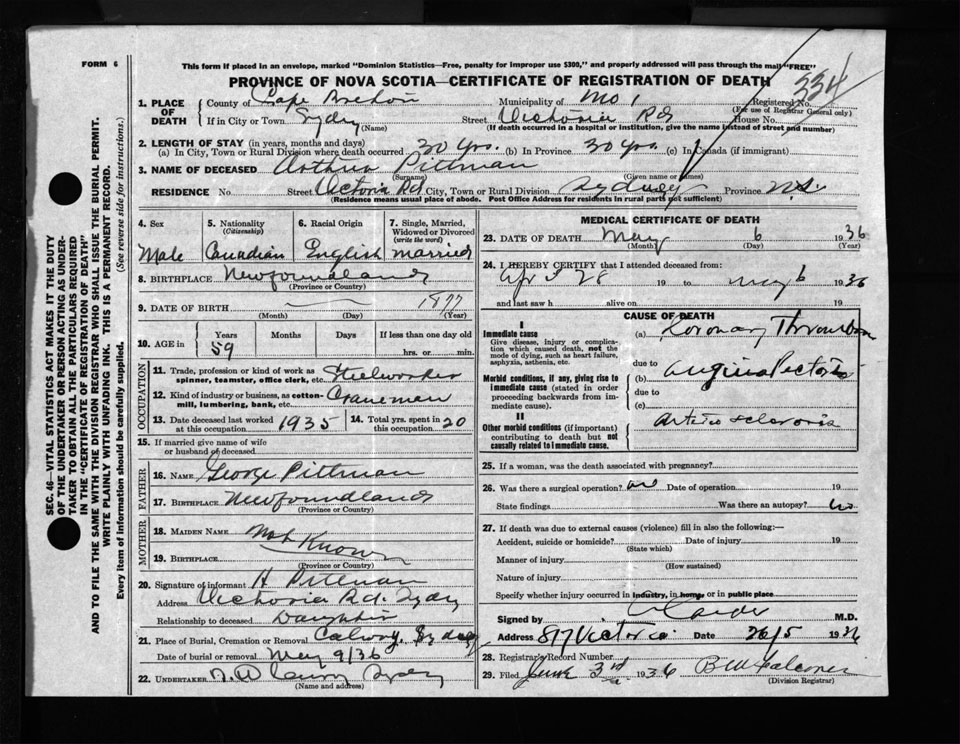 FORM 6
This form if placed in an envelope, marked "Dominion Statistics—Free, penalty for improper use $300," and properly addressed will pass through the mail "FREE"
PROVINCE OF NOVA SCOTIA—CERTIFICATE OF REGISTRATION OF DEATH
334
1. PLACE OF DEATH County of Cape Breton Municipality of No 1 Registered No.
(For use of Registrar General only)
If in City or Town Sydney Street Victoria Rd House No.
(Name) (If death occurred in a hospital or institution, give the name instead of street and number)
2. LENGTH OF STAY (in years, months and days)
(a) In City, Town or Rural Division where death occurred 30 yrs. (b) In Province 30 yrs. (c) In Canada (if immigrant)
3. NAME OF DECEASED Arthur Pittman
(Surname) (Given name or names)
RESIDENCE No. Street Victoria Rd City, Town or Rural Division Sydney Province N.S.
(Residence means usual place of abode. Post Office Address for residents in rural parts not sufficient)
4. Sex 5. Nationality (Citizenship) 6. Racial Origin 7. Single, Married, Widowed or Divorced (write the word)
Male Canadian English married
8. BIRTHPLACE Newfoundland
(Province or Country)
9. DATE OF BIRTH 1877
(Month) (Day) (Year)
10. AGE in Years Months Days If less than one day old
59 hrs. or min.
OCCUPATION
11. Trade, profession or kind of work as spinner, teamster, office clerk, etc. Steelworker
12. Kind of industry or business, as cotton-mill, lumbering, bank, etc. Craneman
13. Date deceased last worked at this occupation 1935 14. Total yrs. spent in this occupation 20
15. If married give name of wife or husband of deceased
FATHER
16. NAME George Pittman
17. BIRTHPLACE Newfoundland
(Province or Country)
MOTHER
18. MAIDEN NAME Not Known
19. BIRTHPLACE
(Province or Country)
20. Signature of informant H Pittman
Address Victoria Rd. Sydney
Relationship to deceased Daughter
21. Place of Burial, Cremation or Removal Calvary, Sydney
Date of burial or removal May 9/36
22. UNDERTAKER Sydney
(Name and address)
MEDICAL CERTIFICATE OF DEATH
23. DATE OF DEATH May 6 1936
(Month) (Day) (Year)
24. I HEREBY CERTIFY that I attended deceased from:
April 28 19 to May 6 1936
and last saw h alive on 19
CAUSE OF DEATH
I
Immediate cause
Give disease, injury or complication which caused death, not the mode of dying, such as heart failure, asphyxia, asthenia, etc.
(a) Coronary Thrombosis
due to
Morbid conditions, if any, giving rise to immediate cause (stated in order proceeding backwards from immediate cause).
(b) Angina Pectoris
due to
(c)
II
Other morbid conditions (if important) contributing to death but not causally related to immediate cause.
Arterio sclerosis
25. If a woman, was the death associated with pregnancy?
26. Was there a surgical operation? no Date of operation 19
State findings Was there an autopsy? no
27. If death was due to external causes (violence) fill in also the following:—
Accident, suicide or homicide? Date of injury 19
(State which)
Manner of injury
(How sustained)
Nature of injury
Specify whether injury occurred in industry, in home, or in public place
Signed by M.D.
Address 817 Victoria Date 26/5 1936
28. Registrar's Record Number
29. Filed June 3rd 1936 B W Falconer
(Division Registrar)
SEC. 46—VITAL STATISTICS ACT MAKES IT THE DUTY
OF THE UNDERTAKER OR PERSON ACTING AS UNDER-
TAKER TO OBTAIN ALL THE PARTICULARS REQUIRED
IN THE "CERTIFICATE OF REGISTRATION OF DEATH"
AND TO FILE THE SAME WITH THE DIVISION REGISTRAR WHO SHALL ISSUE THE BURIAL PERMIT.
WRITE PLAINLY WITH UNFADING INK. THIS IS A PERMANENT RECORD.
Every item of information should be carefully supplied. (See reverse side for instructions.)